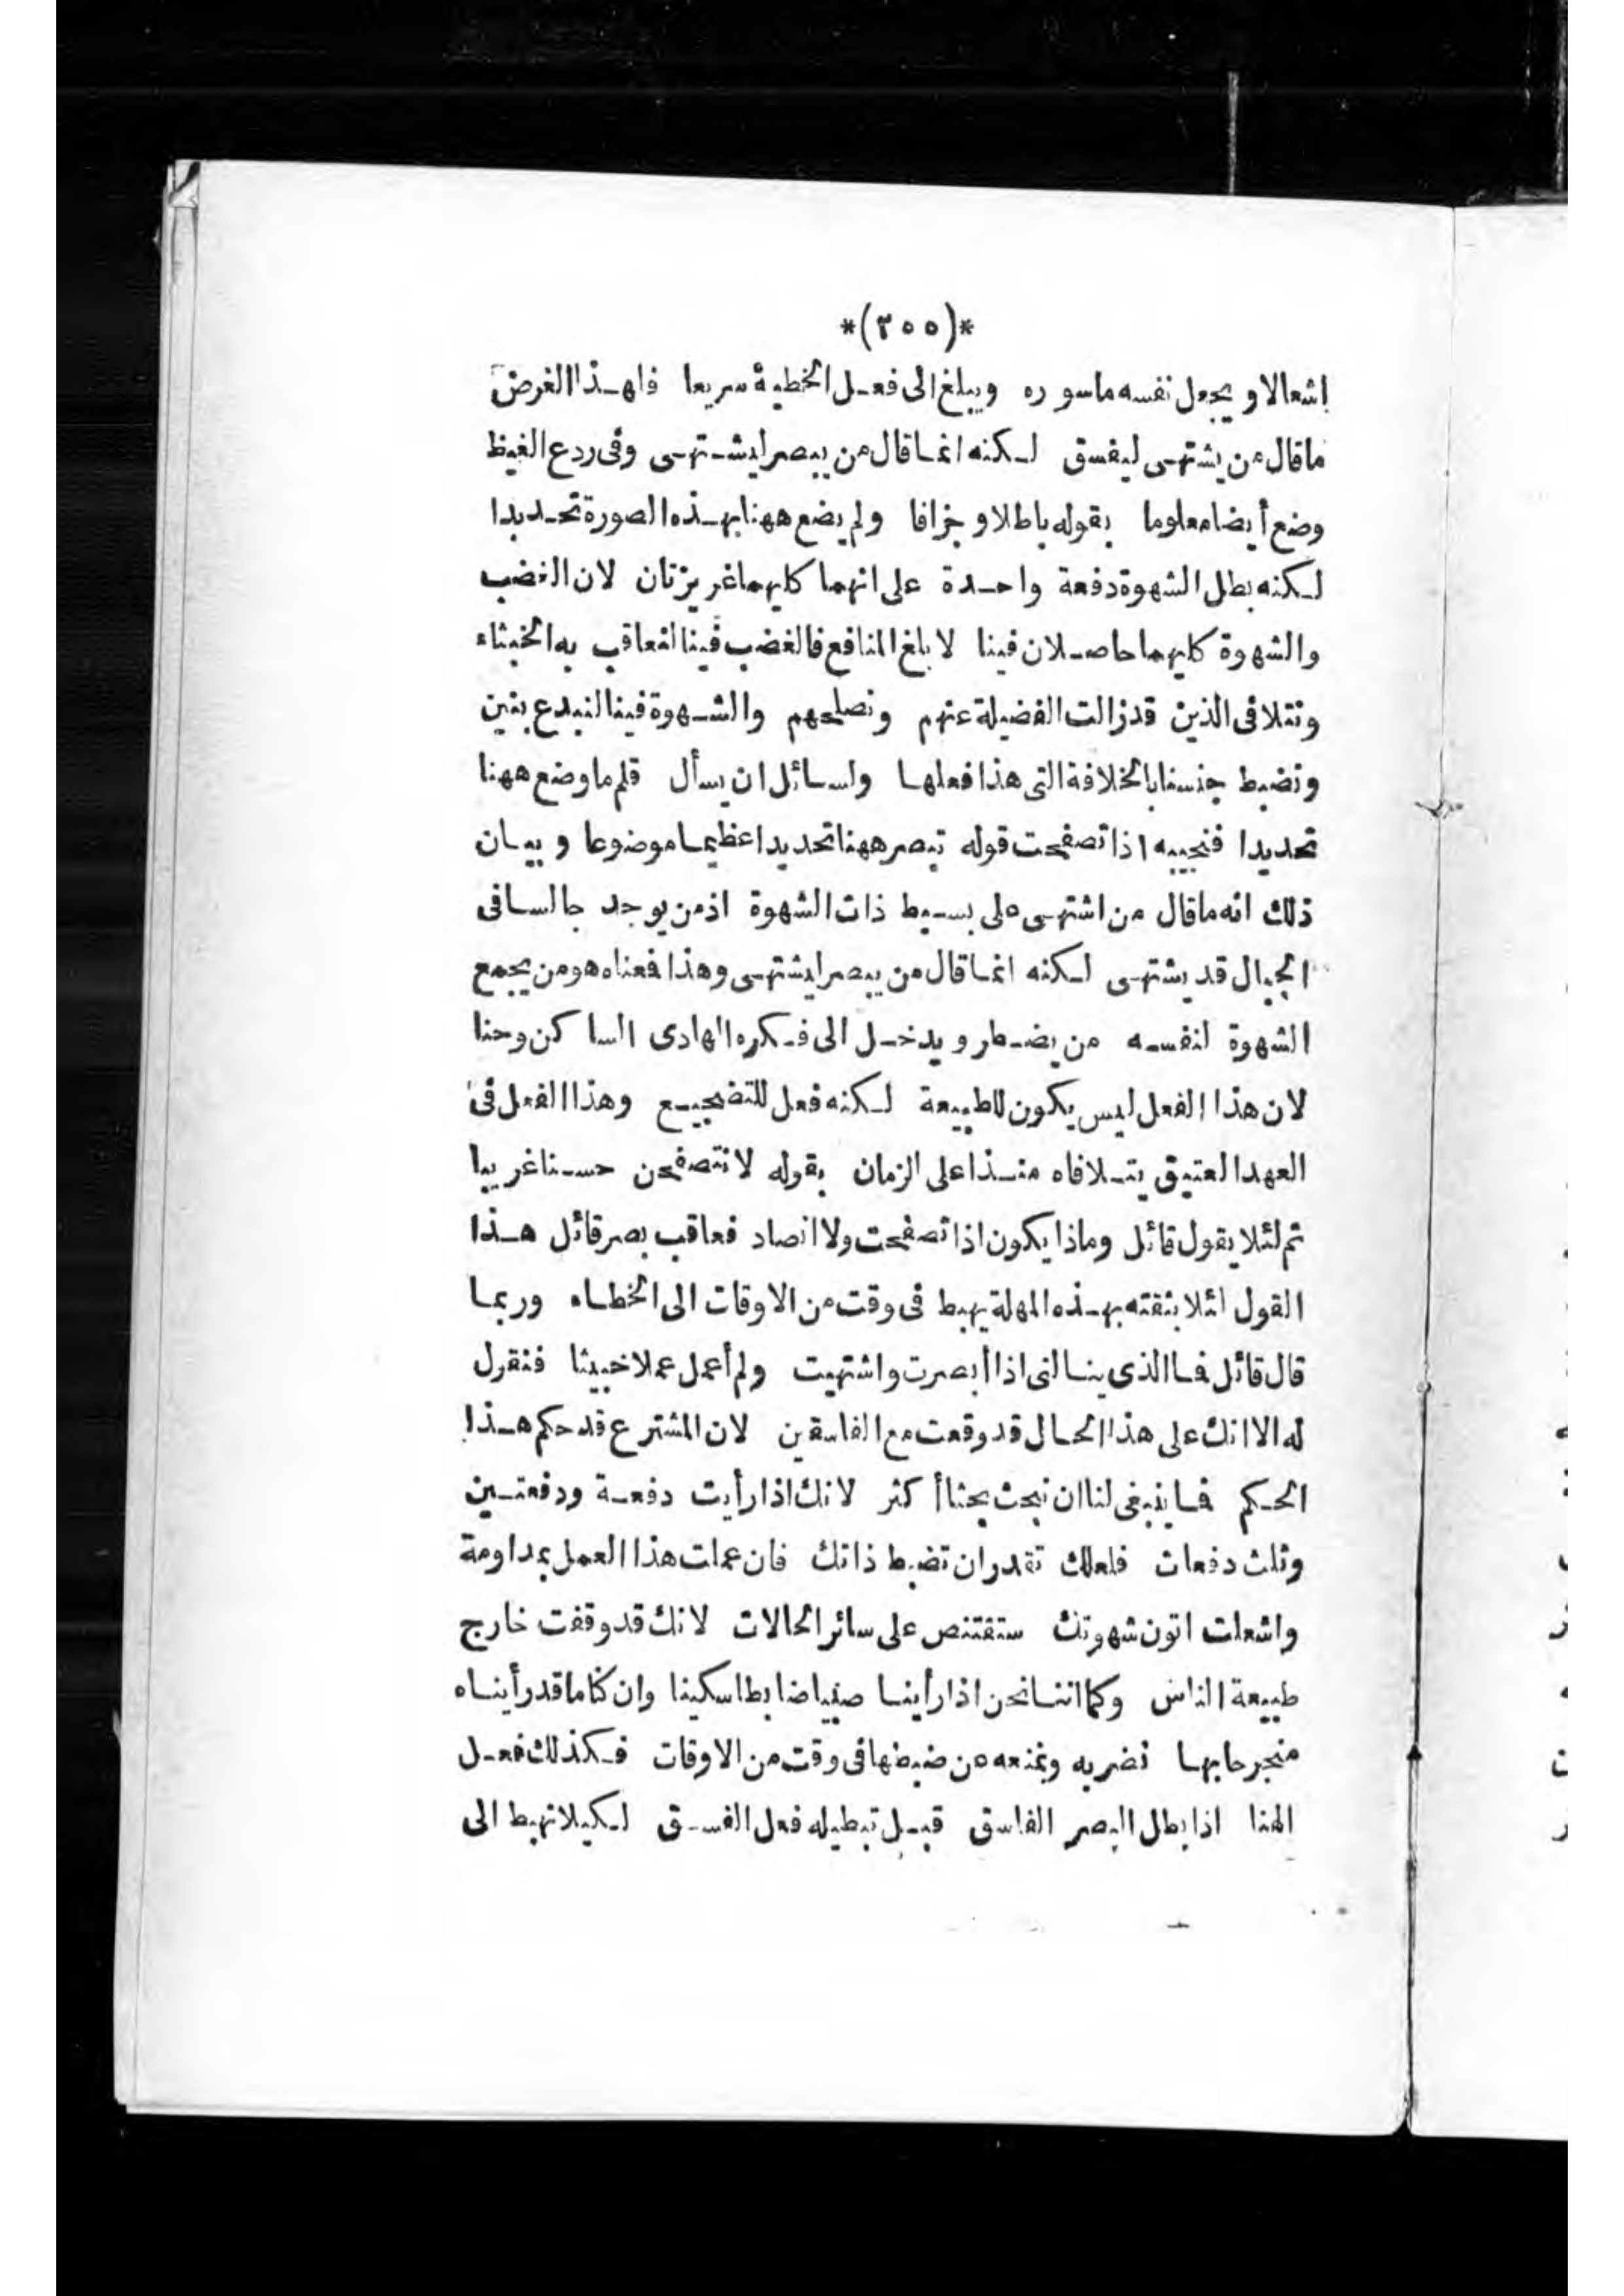 *(٢٥٥)*
اشعالا ويجعل نفسه ماسوره ويبلغ الى فعل الخطية سريعا فلهذا الغرض
ما قال من يشتهى ليفسق لكنه انما قال من يبصر ليشتهى وفى ردع الغيظ
وضع أيضا معلوما بقوله باطلا وجزافا ولم يضع ههنا بهذه الصورة تحديدا
لكنه بطل الشهوة دفعة واحدة على انهما كليهما غريزتان لان الغضب
والشهوة كليهما حاصلان فينا لابلغ المنافع فالغضب فينا لنعاقب به الخبثاء
ونتلافى الذين قد زالت الفضيلة عنهم ونصلحهم والشهوة فينا لنبدع بنين
ونضبط جنسنا بالخلافة التى هذا فعلها ولسائل ان يسأل فلم ما وضع ههنا
تحديدا فنجيبه اذا تصفحت قوله تبصر ههنا تحديدا عظيما موضوعا وبيان
ذلك انه ما قال من اشتهى على بسيط ذات الشهوة اذ من يوجد جالسا فى
الجبال قد يشتهى لكنه انما قال من يبصر ليشتهى وهذا فمعناه هو من يجمع
الشهوة لنفسه من يضطر ويدخل الى فكره الهادى الساكن وحنا
لان هذا الفعل ليس يكون للطبيعة لكنه فعل للتضجيع وهذا الفعل فى
العهد العتيق يتلافاه منذ اعلى الزمان بقوله لا تتصفحن حسنا غريبا
ثم لئلا يقول قائل وماذا يكون اذا تصفحت ولا انصاد فعاقب بصر قائل هذا
القول لئلا بثقته بهذه المهلة يهبط فى وقت من الاوقات الى الخطاء وربما
قال قائل فما الذى ينالنى اذا أبصرت واشتهيت ولم أعمل عملا خبيثا فنقول
له الا انك على هذا الحال قد وقعت مع الفاسقين لان المشترع قد حكم هذا
الحكم فما ينبغى لنا ان نبحث بحثا أكثر لانك اذا رأيت دفعة ودفعتين
وثلث دفعات فلعلك تقدر ان تضبط ذاتك فان عملت هذا العمل بمداومة
واشعلت اتون شهوتك ستقتنص على سائر الحالات لانك قد وقفت خارج
طبيعة الناس وكما اننا نحن اذا رأينا صبيا ضابطا سكينا وان كنا ما قد رأيناه
منجرحا بها نضربه ونمنعه من ضبطها فى وقت من الاوقات فكذلك فعل
الهنا اذا بطل البصر الفاسق قبل تبطيله فعل الفسق لكيلا تهبط الى